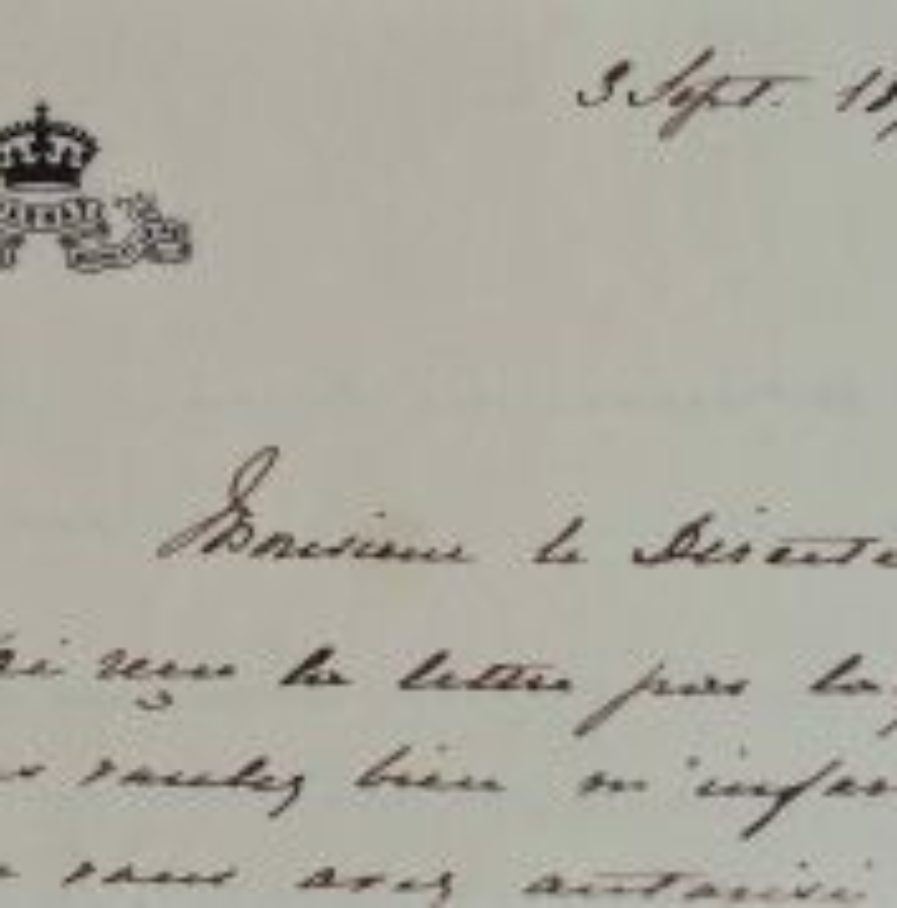 3 Sept. 18
Monsieur le Directe
ai reçu la lettre par la
s voulez bien m'infor
vous avez autorisé